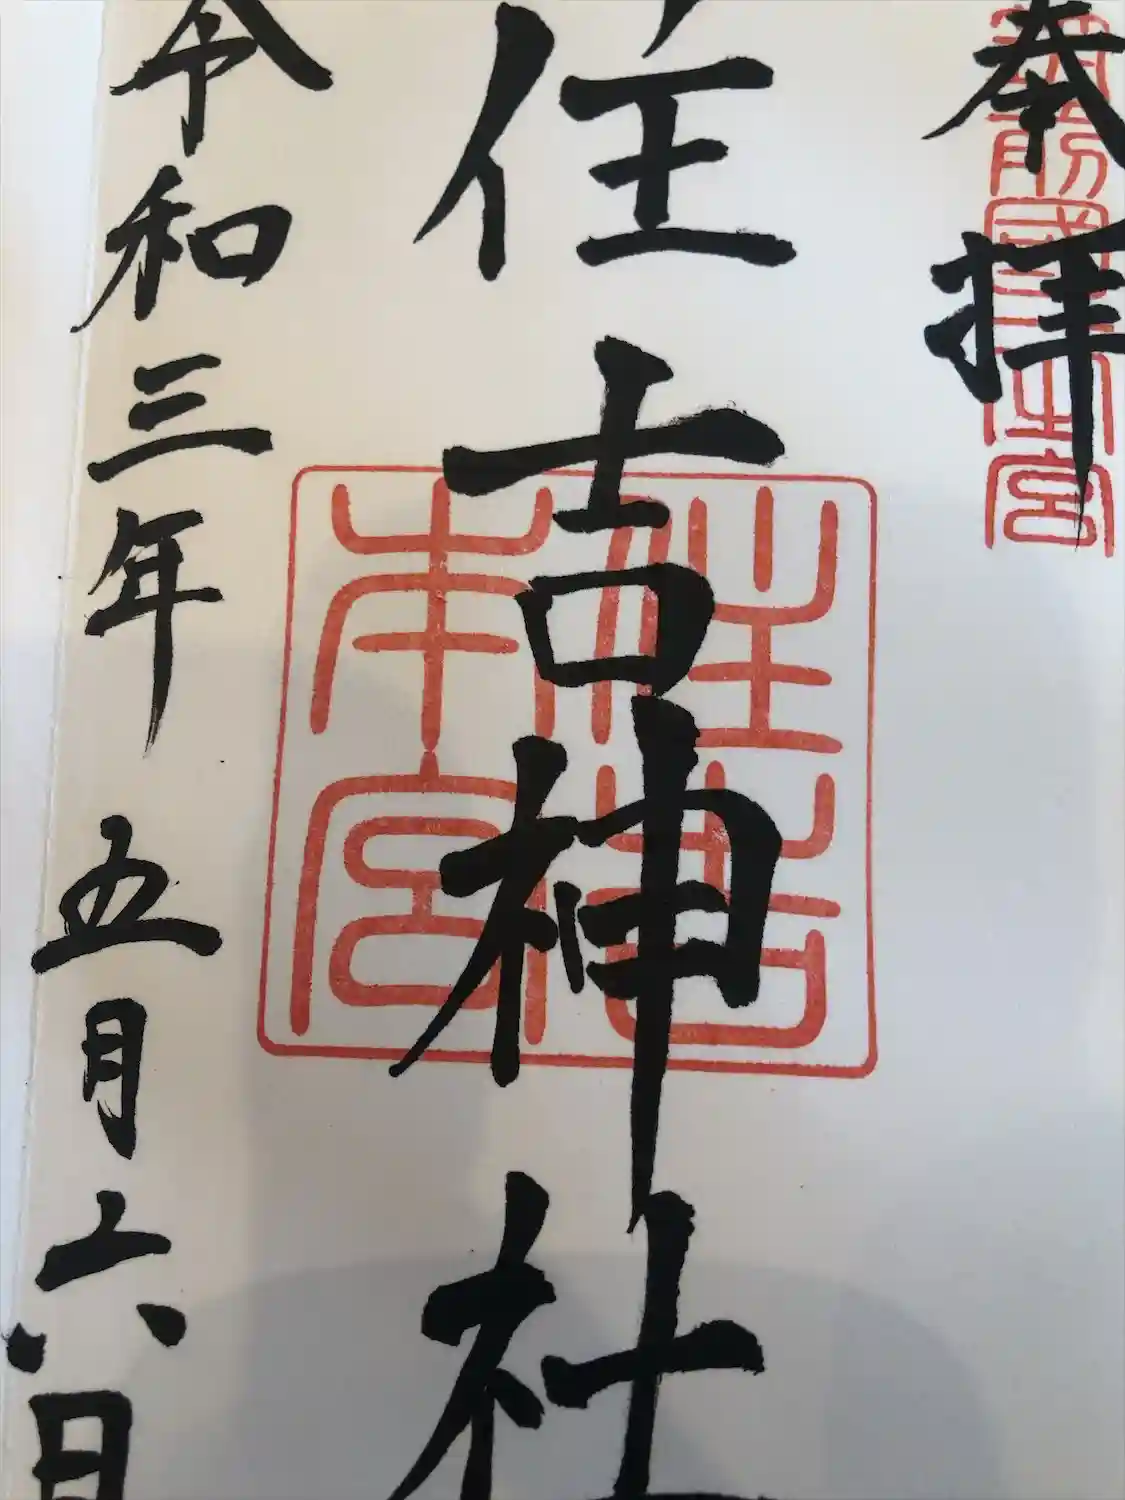 奉拝
筑前國一之宮
住吉神社
住吉本宮
令和三年 五月六日